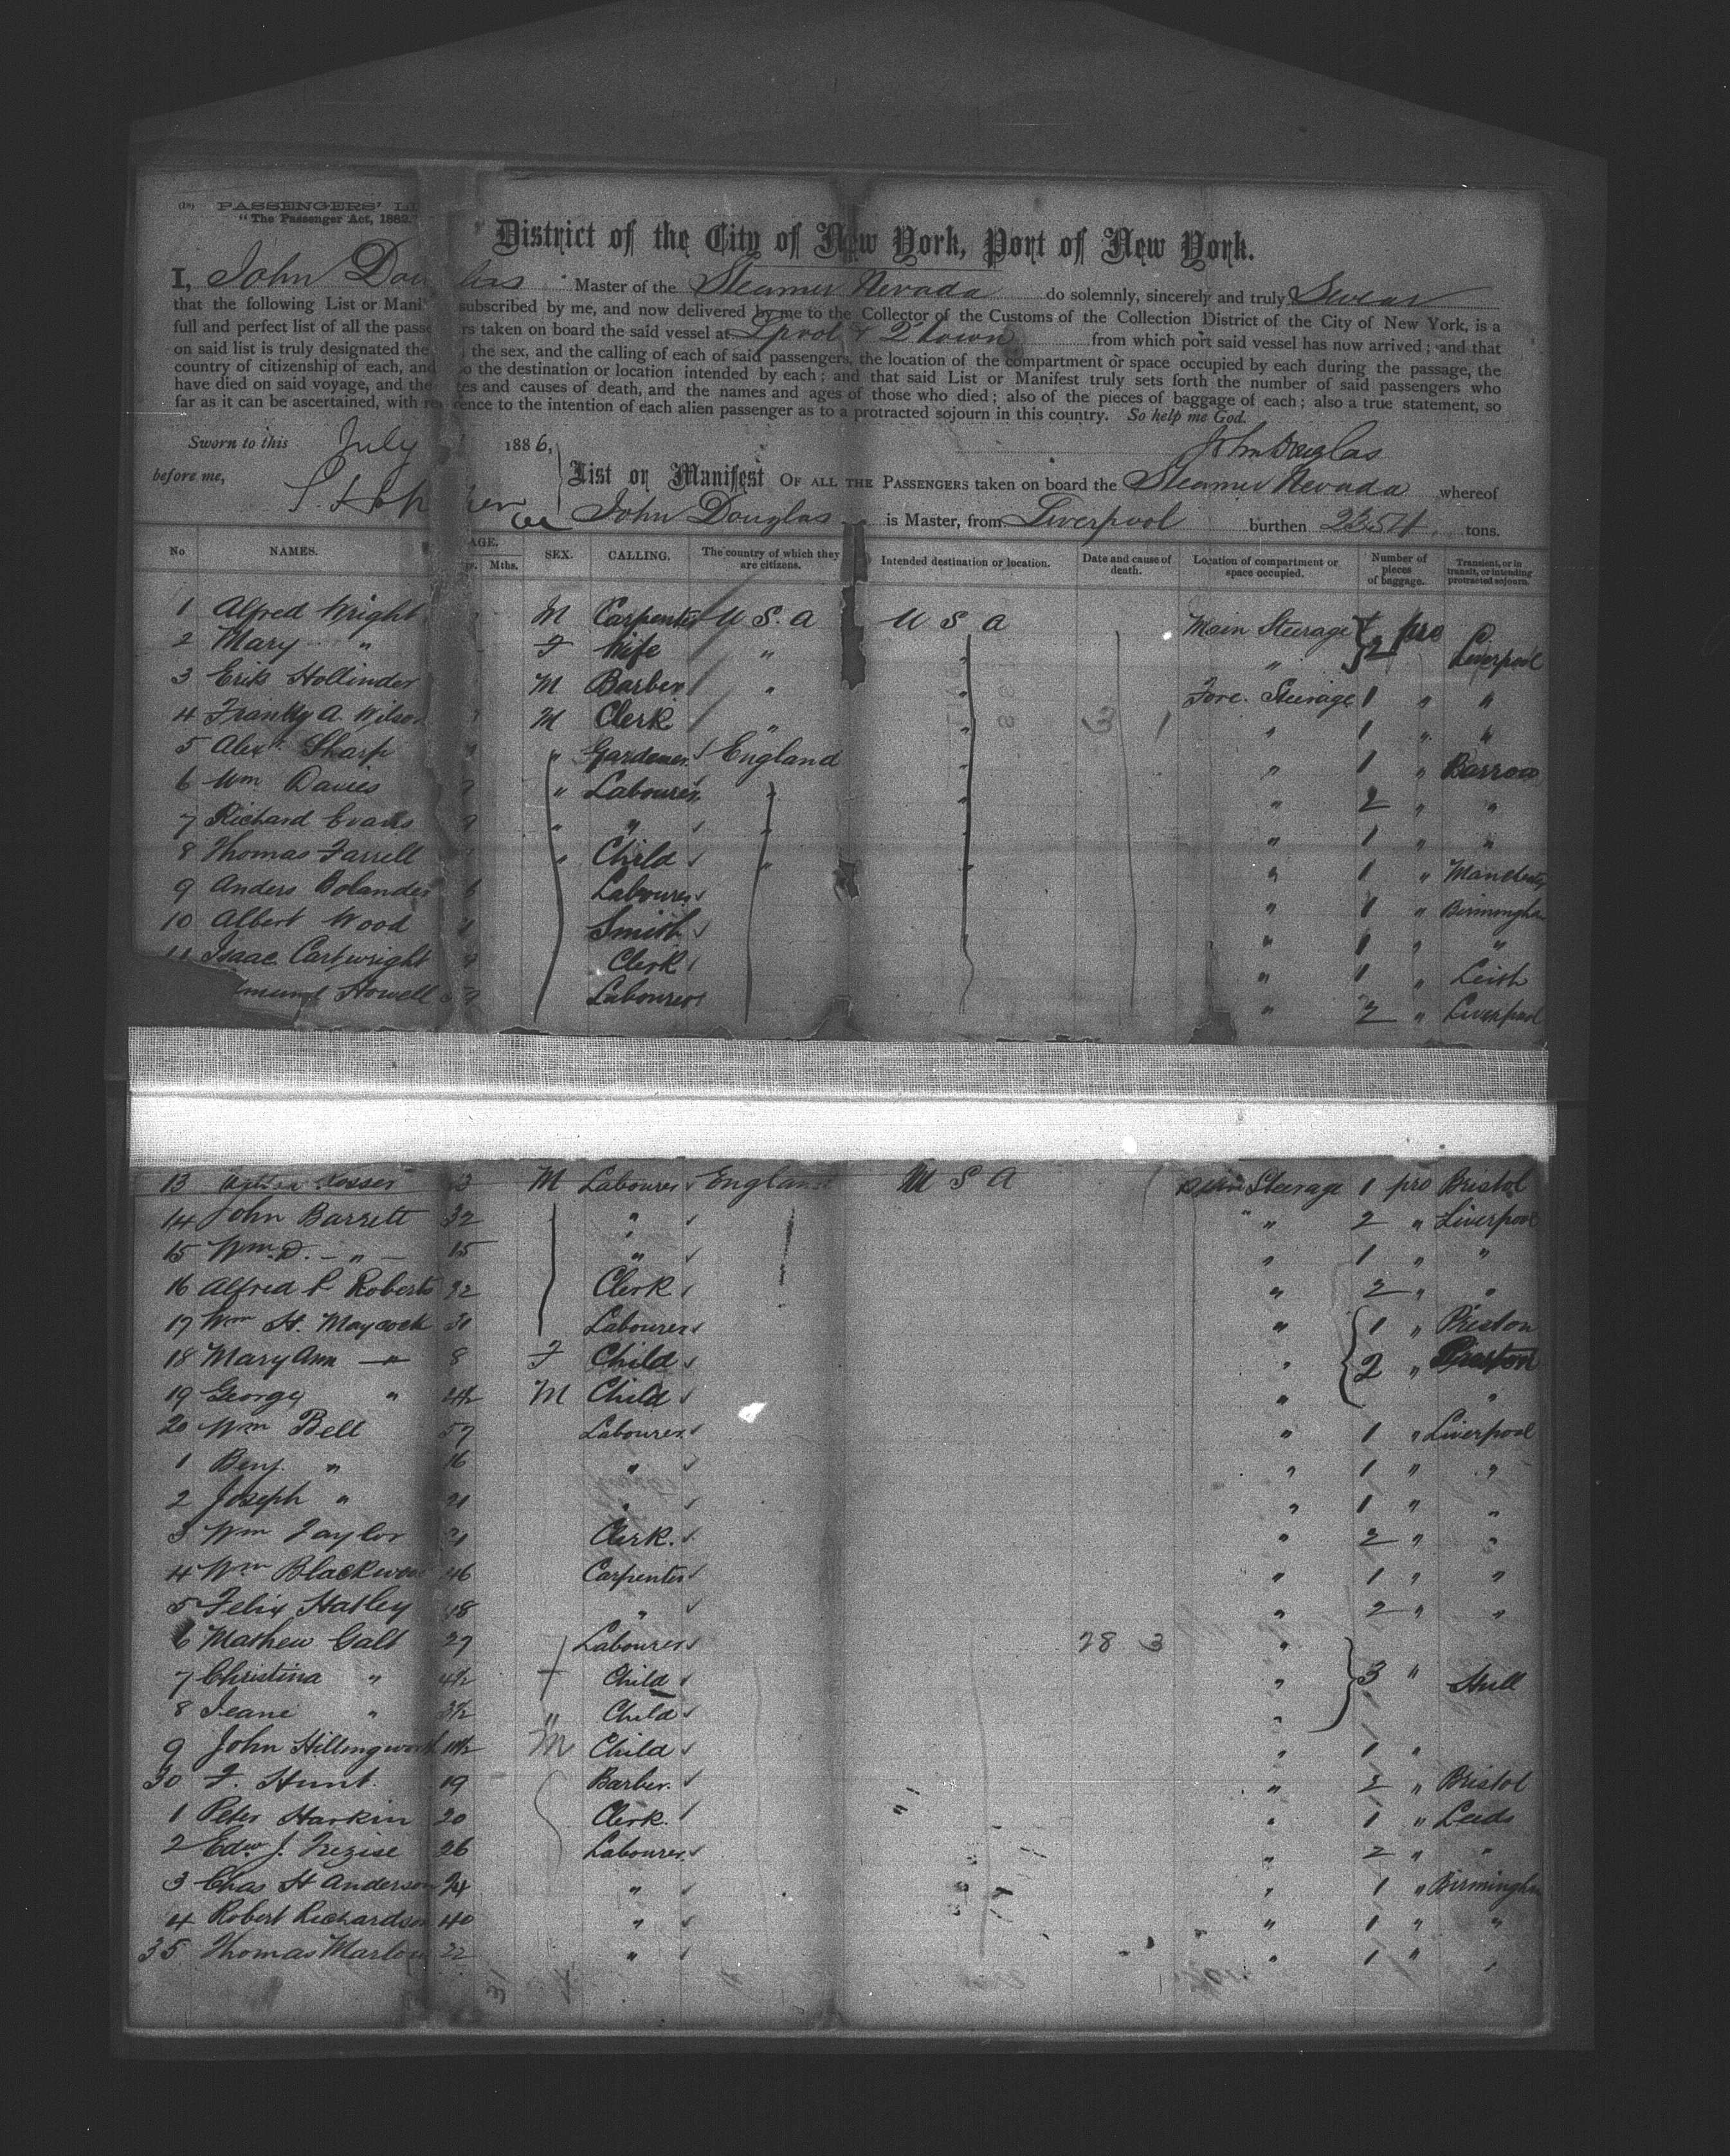 PASSENGERS'
"The Passenger Act, 1882."
District of the City of New York, Port of New York.
I, John Douglas Master of the Steamer Nevada do solemnly, sincerely and truly Swear
that the following List or Mani subscribed by me, and now delivered by me to the Collector of the Customs of the Collection District of the City of New York, is a
full and perfect list of all the passe rs taken on board the said vessel at L'pool & Q'town from which port said vessel has now arrived; and that
on said list is truly designated the the sex, and the calling of each of said passengers, the location of the compartment or space occupied by each during the passage, the
country of citizenship of each, and o the destination or location intended by each; and that said List or Manifest truly sets forth the number of said passengers who
have died on said voyage, and the tes and causes of death, and the names and ages of those who died; also of the pieces of baggage of each; also a true statement, so
far as it can be ascertained, with re rence to the intention of each alien passenger as to a protracted sojourn in this country. So help me God.
Sworn to this July 1886, John Douglas
before me,
List or Manifest OF ALL THE PASSENGERS taken on board the Steamer Nevada whereof
John Douglas is Master, from Liverpool burthen 2354 tons.
No NAMES. AGE. Mths. SEX. CALLING. The country of which they are citizens. Intended destination or location. Date and cause of death. Location of compartment or space occupied. Number of pieces of baggage. Transient, or in transit, or intending protracted sojourn.
1 Alfred Wright M Carpenter U S. A U S A Main Steerage pro
2 Mary " F Wife " " " 2 Liverpool
3 Erik Hollinder M Barber " " Fore. Steerage 1 " "
4 A. Wilson M Clerk " " " 1 " "
5 Alexr. Sharp " Gardener England " " 1 " Barrow
6 Wm Davies " Labourer " " " 2 " "
7 Richard Evans " " " " " 1 " "
8 Thomas Farrell " Child " " " 1 " Manchester
9 Anders Bolander Labourer " 1 " Birmingham
10 Albert Wood Smith " 1 " "
11 Isaac Cartwright Clerk " 1 " Leith
Howell Labourer " 2 " Liverpool
13 M Labourer England U S A Steerage 1 pro Bristol
14 John Barrett 32 " " " 2 " Liverpool
15 Wm. D. - " - 15 " " 1 " "
16 Alfred P Roberts 32 Clerk " 2 " "
17 Wm H. Maycock 31 Labourer " 1 " Preston
18 Mary Ann - " 8 F Child " 2 " Preston
19 George " M Child " "
20 Wm Bell 57 Labourer " 1 " Liverpool
1 Benj. " 16 " " 1 " "
2 Joseph " 21 " " 1 " "
3 Wm Taylor 21 Clerk. " 2 " "
4 Wm Blackwood 46 Carpenter " 1 " "
5 Felix Hatley 48 " " 2 " "
6 Mathew Galt 27 Labourer 28 3 "
7 Christina " 4½ Child " 3 " Hull
8 Jeane " 3½ " Child "
9 John Hillingworth M Child " 1 "
30 F. Hunt. 19 Barber. " 2 " Bristol
1 Peter Harkin 20 Clerk. " 1 " Leeds
2 Edw. J. Trezise 26 Labourer " 2 " "
3 Chas H Anderson 24 " " 1 " Birmingham
4 Robert Richardson 40 " " 1 " "
35 Thomas Marlow 22 " " 1 " "